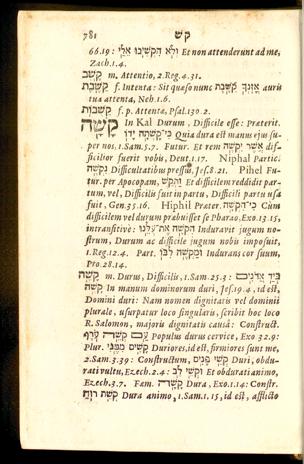 781 קש
66.19: וְלֹא הִקְשִׁיבוּ אֵלַי Et non attenderunt ad me,
Zach.1.4.
קֶשֶׁב m. Attentio, 2.Reg.4.31.
קַשֶּׁבֶת f. Intenta: Sit quaso nunc אָזְנְךָ קַשֶּׁבֶת auris
tua attenta, Neh.1.6.
קַשֻּׁבוֹת f.p. Attenta, Psal.130.2.
קָשָׁה In Kal Durum, Difficile esse: Præterit.
כִּי קָשְׁתָה יָדוֹ Quia dura est manus ejus su-
per nos, 1.Sam.5.7. Futur. Et rem אֲשֶׁר יִקְשֶׁה dif-
ficilior fuerit vobis, Deut.1.17. Niphal Partic.
נִקְשֶׁה Difficultatibus pressus, Jes.8.21. Pihel Fu-
tur. per Apocopam, וַתְּקַשׁ Et difficilem reddidit par-
tum, vel, Difficilis fuit in partu, Difficili partu usa
fuit, Gen.35.16. Hiphil Præter. כִּי הִקְשָׁה Cum
difficilem vel durum præbuisset se Pharao, Exo.13.15,
intransitivè: הִקְשָׁה אֶת־עֻלֵּנוּ Induravit jugum no-
strum, Durum ac difficile jugum nobis imposuit,
1.Reg.12.4. Part. וּמַקְשֶׁה לִבּוֹ Indurans cor suum,
Pro.28.14.
קָשֶׁה m. Durus, Difficilis, 1.Sam.25.3: בְּיַד אֲדֹנִים
קָשֶׁה In manum dominorum duri, Jes.19.4. id est,
Domini duri: Nam nomen dignitatis vel dominii
plurale, usurpatur loco singularis, scribit hoc loco
R. Salomon, majoris dignitatis causâ: Construct.
עַם קְשֵׁה עֹרֶף Populus durus cervice, Exo 32.9:
Plur. קָשִׁים מִמֶּנִּי Duriores, id est, firmiores sunt me,
2.Sam.3.39: Constructum, קְשֵׁי פָנִים Duri, obdu-
rati vultu, Ezech.2.4: וּקְשֵׁי לֵב Et obdurati animo,
Ezech.3.7. Fam. קָשָׁה Dura, Exo.1.14: Constr.
קְשַׁת רוּחַ Dura animo, 1.Sam.1.15, id est, afflicto